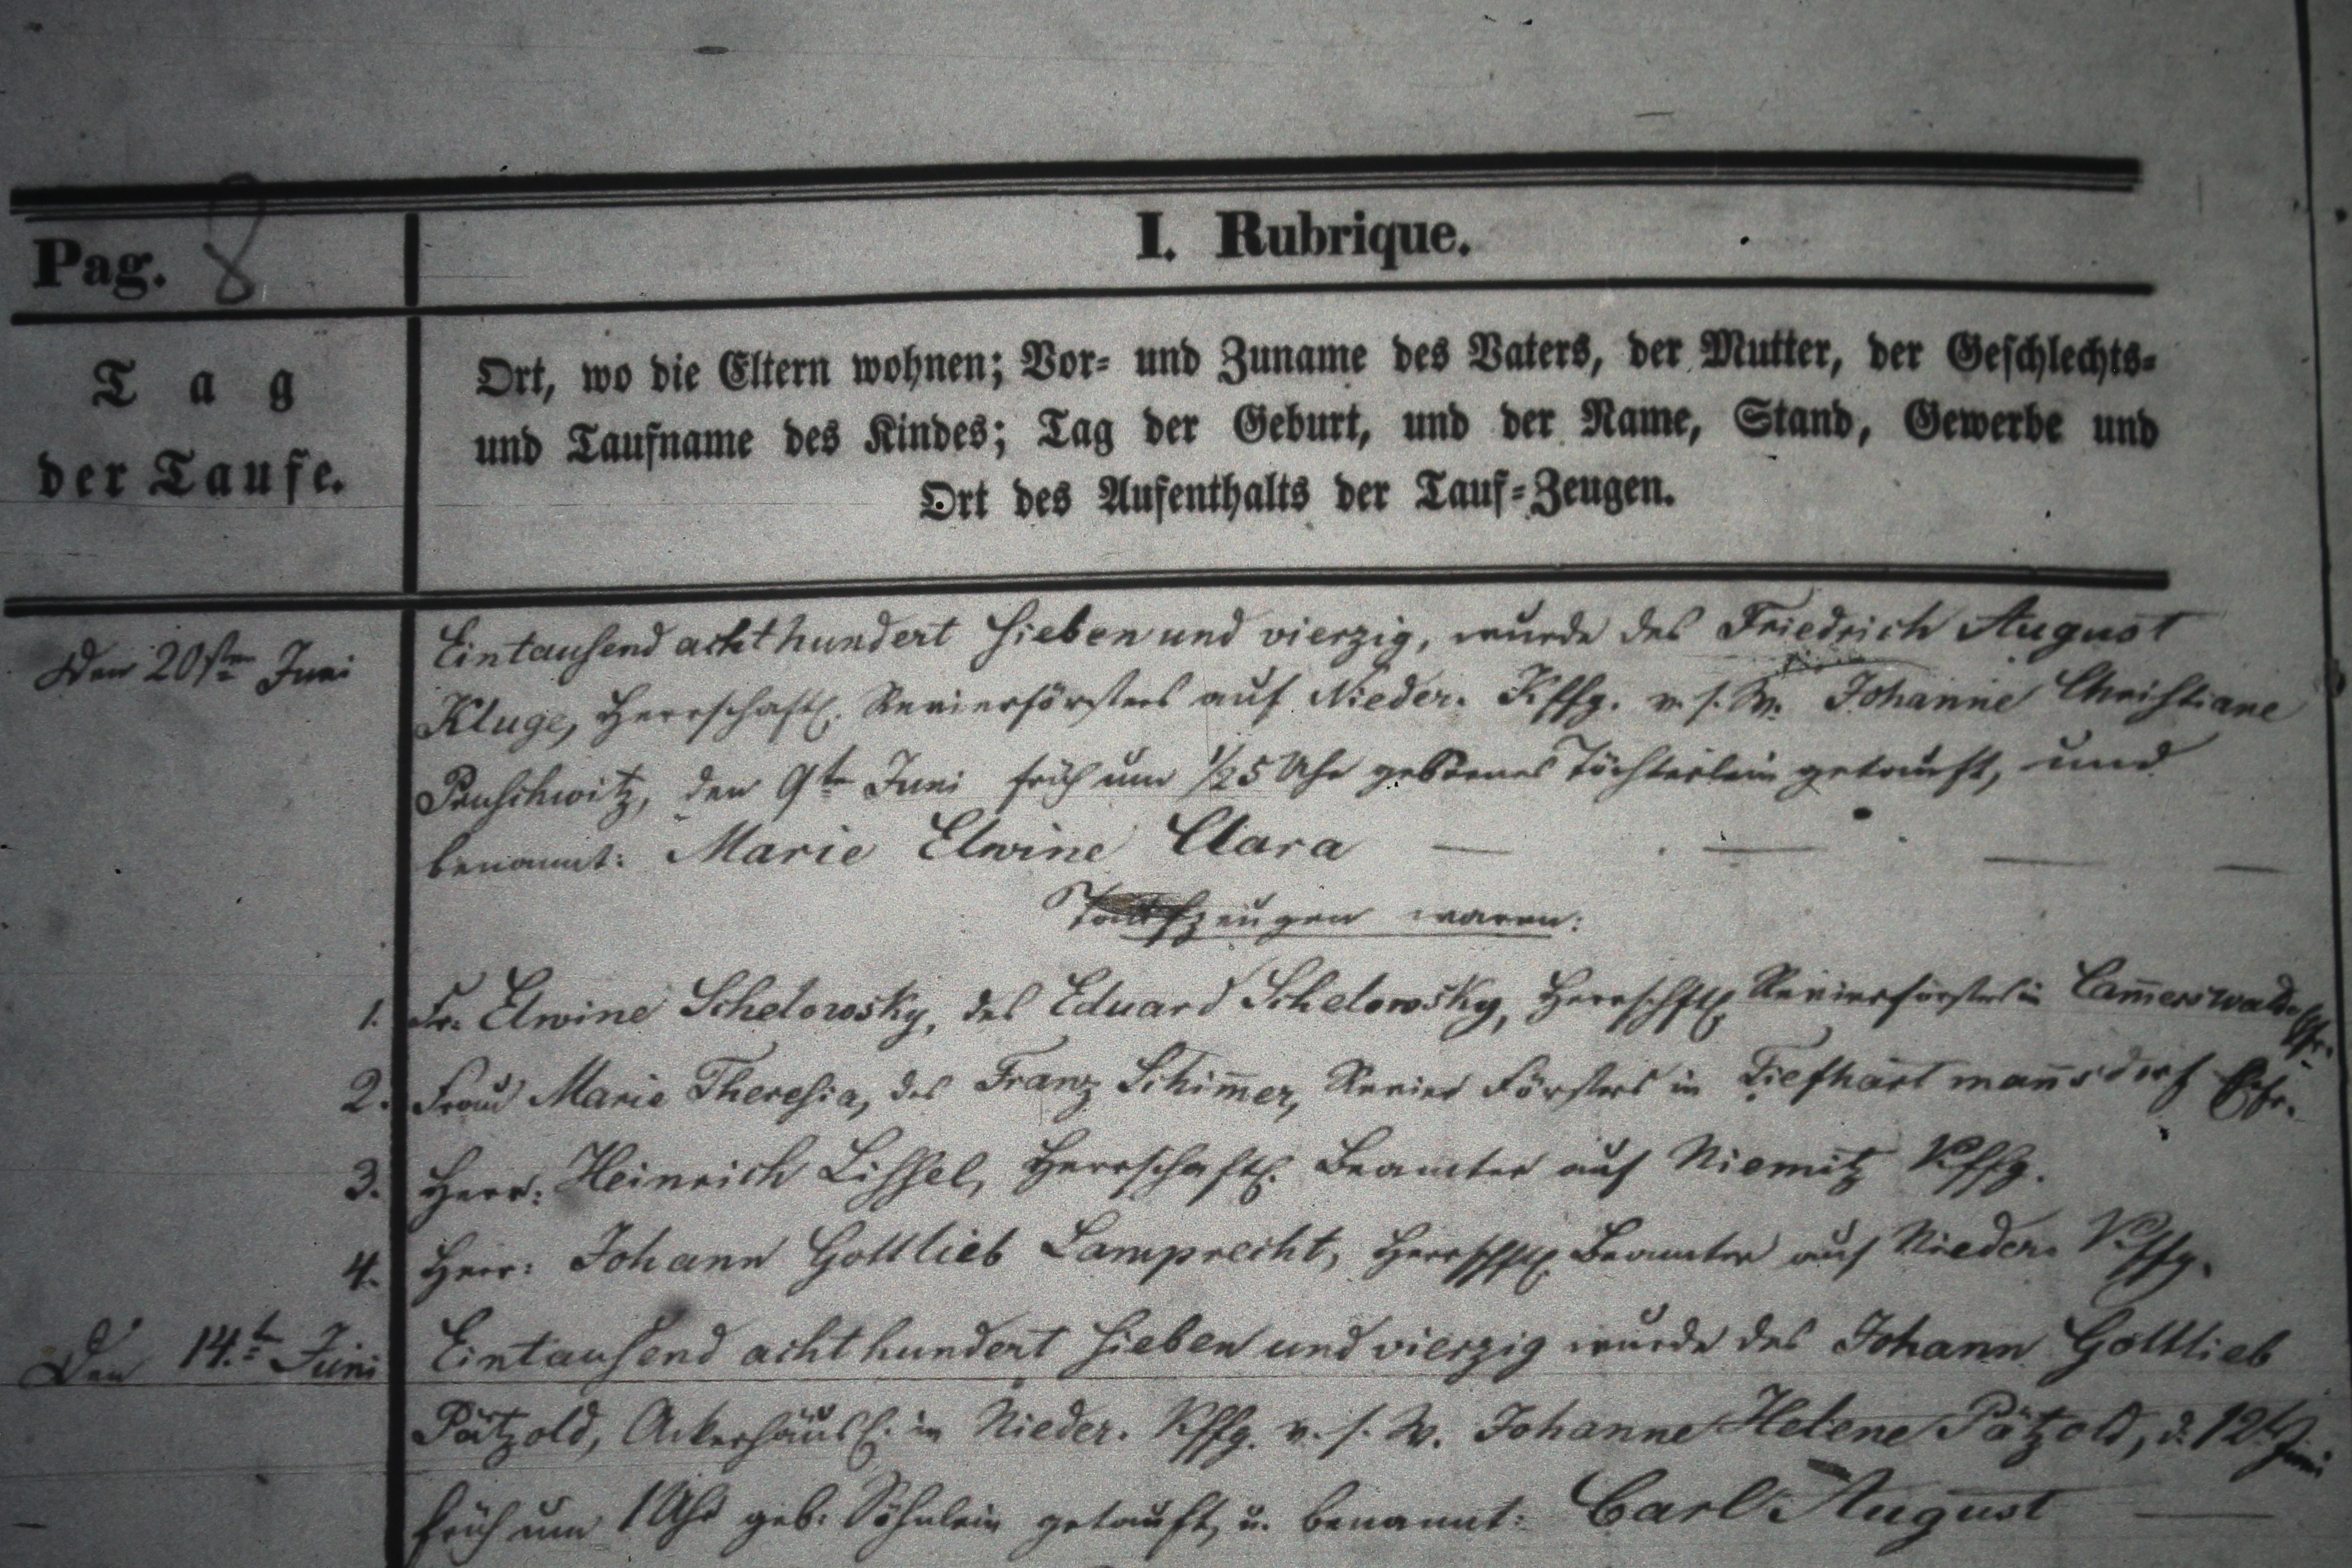 Pag. 8
I. Rubrique.
Tag
der Taufe.
Ort, wo die Eltern wohnen; Vor- und Zuname des Vaters, der Mutter, der Geschlechts-
und Taufname des Kindes; Tag der Geburt, und der Name, Stand, Gewerbe und
Ort des Aufenthalts der Tauf-Zeugen.
Den 20sten Juni
Eintausend acht hundert sieben und vierzig, wurde des Friedrich August
Kluge, Herrschaftl. Revierförsters auf Nieder. Kffg. v. s. W. Johanne Christiane
Penschwitz, den 9te Juni früh um 1/25 Uhr gebornes Töchterlein getauft, und
benannt: Marie Elwine Clara — — — —
Taufzeugen waren:
1. Fr. Elwine Schelowsky, des Eduard Schelowsky, Herrschftl. Revierförsters in Cam̄erswaldau
2. Frau Marie Theresia, des Franz Schim̄er, Revier Försters in Tiefhartman̄sdorf Ehfr.
3. Herr: Heinrich Lissel, Herrschaftl. Beamter auf Niemitz Kffg.
4. Herr: Johann Gottlieb Lamprecht, Herrschftl. Beamter auf Nieder. Kffg.
Den 14.te Juni
Eintausend acht hundert sieben und vierzig wurde des Johann Gottlieb
Pätzold, Ackerhäusl. in Nieder. Kffg. v. s. W. Johanne Helene Pätzold, d. 12t Juni
früh um 1 Uhr geb. Söhnlein getauft, u. benannt: Carl August —